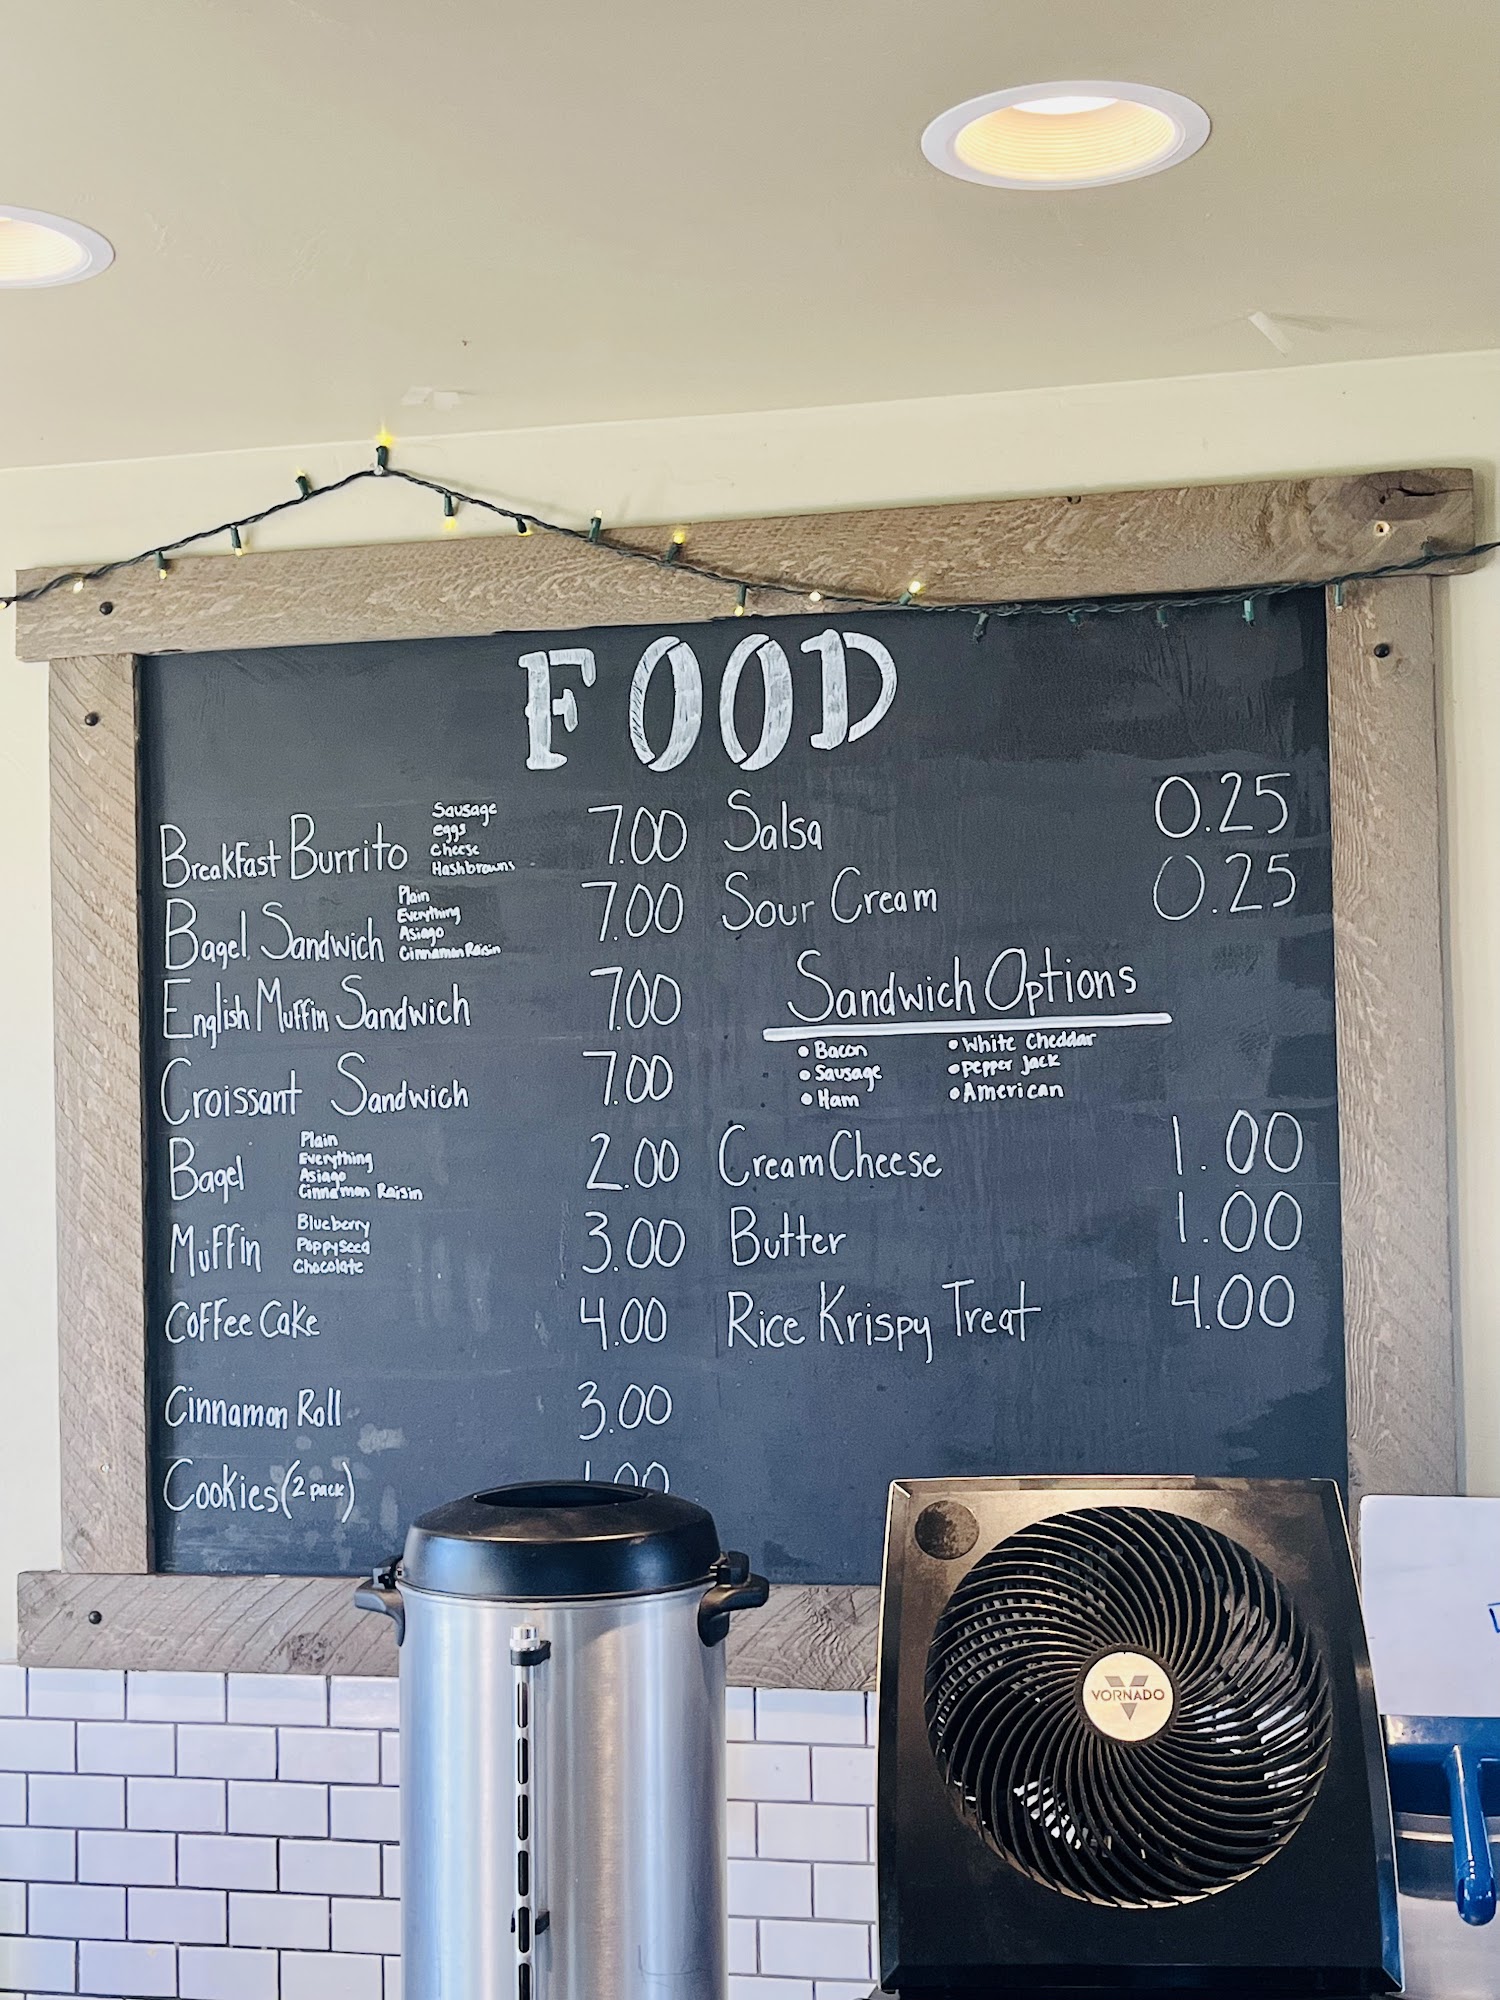 FOOD
Breakfast Burrito 7.00
Sausage
eggs
Cheese
Hashbrowns
Bagel Sandwich 7.00
Plain
Everything
Asiago
Cinnamon Raisin
English Muffin Sandwich 7.00
Croissant Sandwich 7.00
Bagel 2.00
Plain
Everything
Asiago
Cinnamon Raisin
Muffin 3.00
Blueberry
Poppyseed
Chocolate
Coffee Cake 4.00
Cinnamon Roll 3.00
Cookies (2 pack) 1.00
Salsa 0.25
Sour Cream 0.25
Sandwich Options
• Bacon
• Sausage
• Ham
• White Cheddar
• Pepper Jack
• American
Cream Cheese 1.00
Butter 1.00
Rice Krispy Treat 4.00
VORNADO